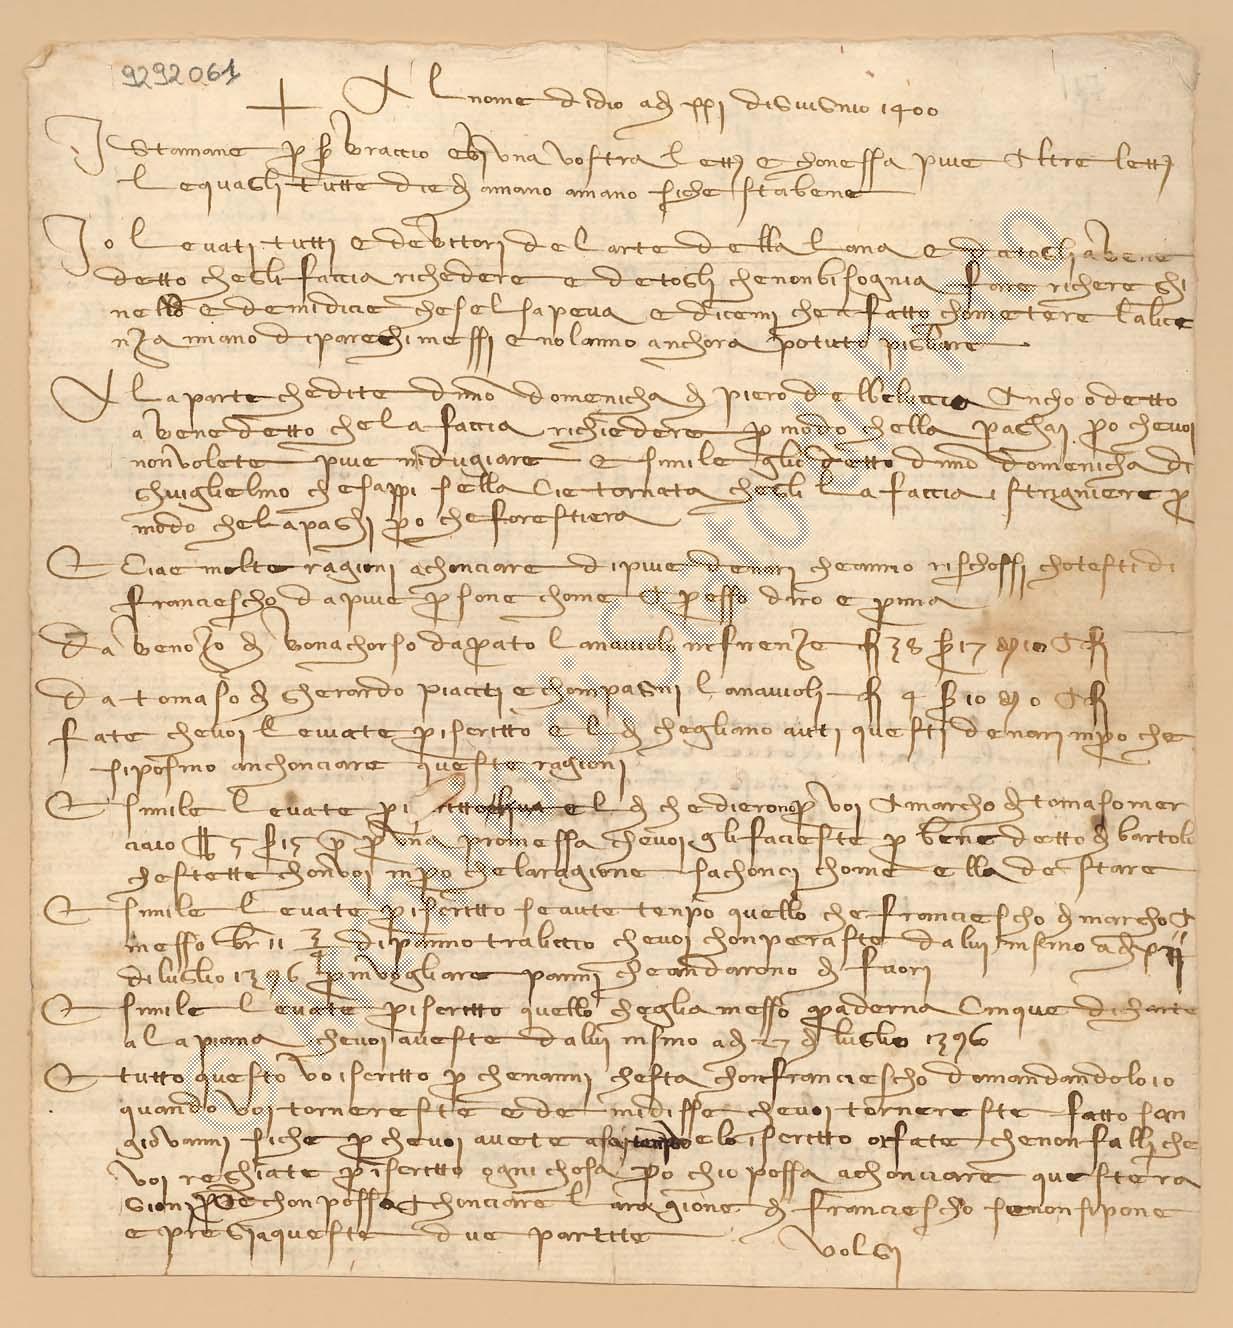 9292061
+ Al nome didio adi xxi di giugnio 1400
Istamane per ser braccio ebi una vostra lett e chonessa piue altre lett
lequagli tutte diedi amano amano siche stabene
Io levati tutti e debitori delarte della lana e detogli abene
detto chegli faccia richedere e detogli chenonbisognia fare richere ghi
nello edemidicie chesel sapeva e dicemi che a fatto chometere lalice
nza imano di parechi messi e nolanno anchora potuto pigliare
Ala parte chedite dmo domenicha di piero delbeluccio ancho o detto
a benedetto che la faccia richiedere per modo chella paghi po chevoi
nonvolete piue indugiare e simile gli detto dmo domenicha di
ghuiglielmo chesappi sella cie tornata chegli la faccia istrigniere per
modo chelapaghi po cheforestiera
E ciae molte ragioni achonciare dipiue denari cheanno rischossi chotesti di
franciescho dapiue persone chome apresso diro e prima
Da benozo di bonachorso daprato lanaiuolo infirenze f 38 s 17 d 10 a f
Da tomaso di gherardo piaciti e chompagni lanaiuoli f 4 s 10 d 0 a f
fate chevoi levate periscritto el di chegliano auti questi denari inpero che
siposino anchonciare queste ragioni
E simile levate peri el di chedierono per voi a marcho di tomaso mer
ciaio 5 s 15 per una promessa chevoi gli facieste per benedetto di bartolo
chestette chonvoi inpero chelaragione sachonci chome ella de stare
E simile levate periscritto seaute tenpo quello che franciescho di marcho a
messo br 11 3/4 dipanno traliccio chevoi chonperaste dalui insino adi xii
di luglio 1396 per invogliare panni cheandarono di fuori
E simile levate periscritto quello cheglia messo quaderna cinque dicharte
ala piana chevoi aveste dalui insino adi 27 di luglio 1396
E tutto questo vo iscritto per chenanni chesta chonfranciescho domandandolo io
quando voi tornereste ede midisse chevoi tornereste fatto san
giovanni siche per chevoi avete elo iscritto orfate chenonfalli che
voi rechiate periscritto ogni chosa po chio possa achonciare questera
gioni chonpossa achonciare laragione di franciescho senonsipone
e pregiaqueste due partite
volgi